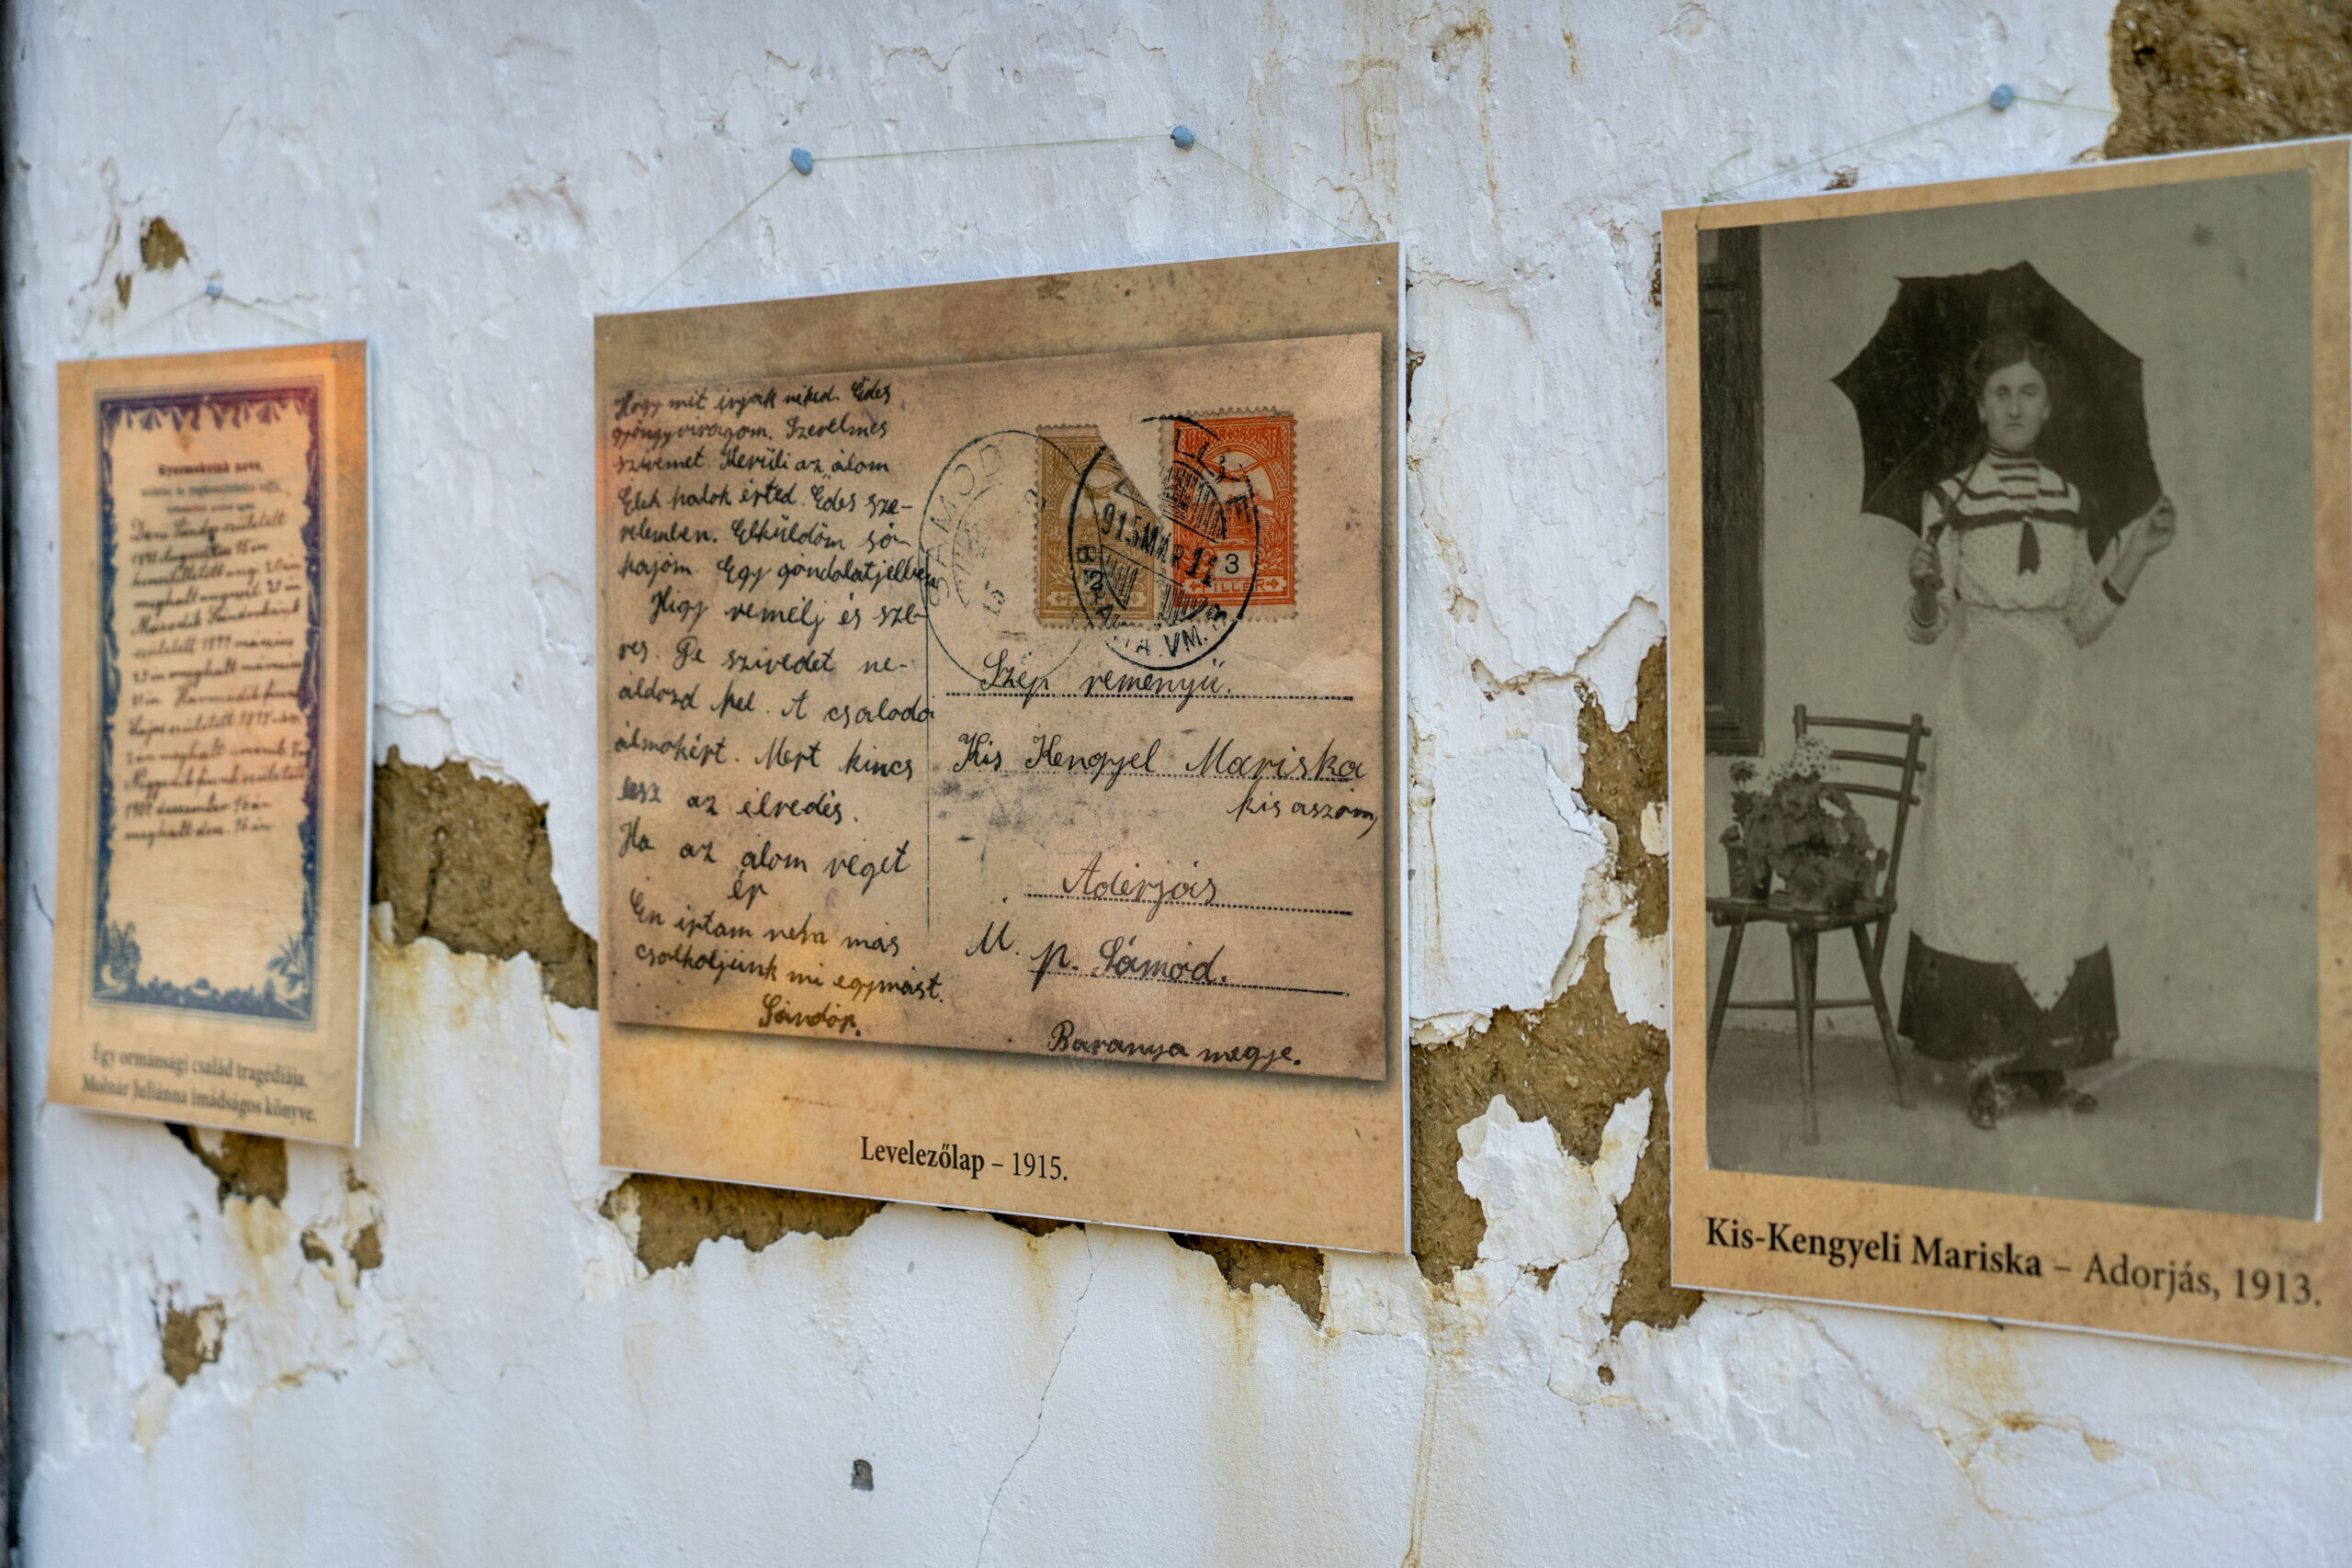 Gyermekeink neve,
Dani Sándor született
meghalt
Második Sándorként
született 1897 március
meghalt március
Harmadik
Lajos született
meghalt
Negyedik fiunk született
1901 december 16 án
meghalt dec. 16 án
Egy ormánsági család tragédiája.
Molnár Juliánna imádságos könyve.
Hogy mit irjak neked. Édes
gyöngyviragom. Szerelmes
szivemet. Kerüli az álom
Élek halok érted. Édes sze-
relemben. Elküldöm só-
hajóm. Egy gondolatjelben
Higy remélj és sze-
res. De szivedet ne-
áldozd fel. A csalodo
álmokért. Mert kincs
lesz az elredés.
Ha az álom véget
ér
Én irtam neha más
csalkoljunk mi egymást.
Sándór.
SAMOD
915 MÁR 11
BARANYA VM.
3
FILLER
Szép reményü.
Kis Kengyel Mariska
kis aszom,
Adérjás
M. p. Sámod.
Baranya megje.
Levelezőlap – 1915.
Kis-Kengyeli Mariska – Adorjás, 1913.